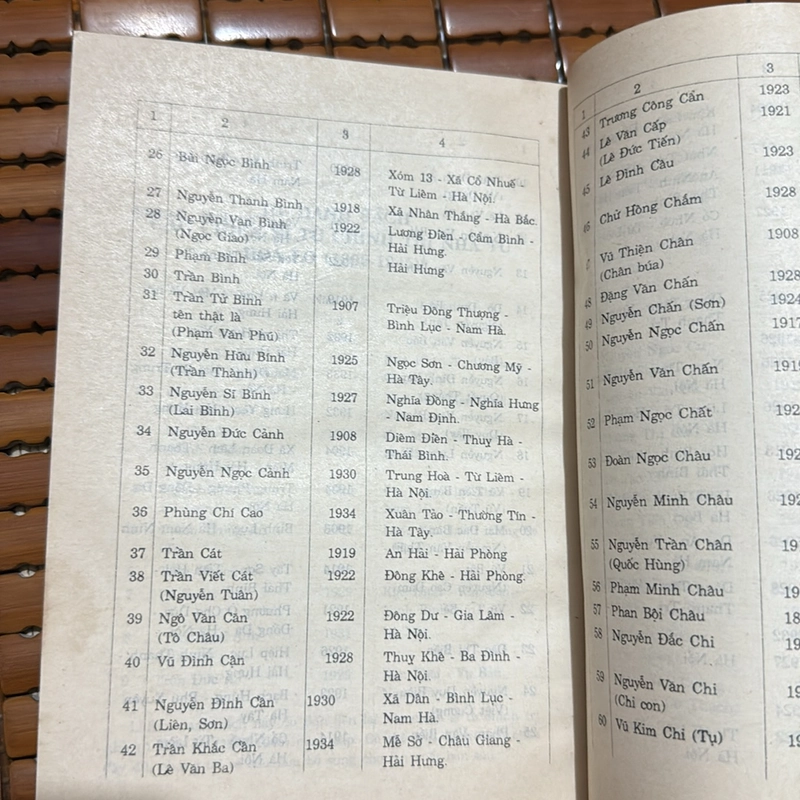 1 2 3 4
26 Bùi Ngọc Bình 1928 Xóm 13 - Xã Cổ Nhuế -
Từ Liêm - Hà Nội.
27 Nguyễn Thanh Bình 1918 Xã Nhân Thắng - Hà Bắc.
28 Nguyễn Văn Bình 1922 Lương Điền - Cẩm Bình -
(Ngọc Giao) Hải Hưng.
29 Phạm Bình Hải Hưng
30 Trần Bình
31 Trần Tử Bình 1907 Triệu Đông Thượng -
tên thật là Bình Lục - Nam Hà.
(Phạm Văn Phú)
32 Nguyễn Hữu Bính 1925 Ngọc Sơn - Chương Mỹ -
(Trần Thành) Hà Tây.
33 Nguyễn Sĩ Bính 1927 Nghĩa Đồng - Nghĩa Hưng
(Lai Bình) - Nam Định.
34 Nguyễn Đức Cảnh 1908 Diêm Điền - Thuỵ Hà -
Thái Bình.
35 Nguyễn Ngọc Cảnh 1930 Trung Hoà - Từ Liêm -
Hà Nội.
36 Phùng Chí Cao 1934 Xuân Tảo - Thường Tín -
Hà Tây.
37 Trần Cát 1919 An Hải - Hải Phòng
38 Trần Viết Cát 1922 Đông Khê - Hải Phòng.
(Nguyễn Tuân)
39 Ngô Văn Cản 1922 Đông Dư - Gia Lâm -
(Tô Châu) Hà Nội.
40 Vũ Đình Cận 1928 Thuỵ Khê - Ba Đình -
Hà Nội.
41 Nguyễn Đình Cần 1930 Xã Dân - Bình Lục -
(Liên, Sơn) Nam Hà.
42 Trần Khắc Cần 1934 Mễ Sở - Châu Giang -
(Lê Văn Ba) Hải Hưng.
1 2 3
43 Trương Công Cẩn 1923
44 Lê Văn Cấp 1921
(Lê Đức Tiến)
45 Lê Đình Cầu 1923
46 Chử Hồng Chẩm 1928
Vũ Thiện Chân 1908
(Chân búa)
48 Đặng Văn Chấn 1928
49 Nguyễn Chấn (Sơn) 1924
50 Nguyễn Ngọc Chấn 1917
51 Nguyễn Văn Chấn
52 Phạm Ngọc Chất
53 Đoàn Ngọc Châu
54 Nguyễn Minh Châu
55 Nguyễn Trần Chân
(Quốc Hùng)
56 Phạm Minh Châu
57 Phan Bội Châu
58 Nguyễn Đắc Chi
59 Nguyễn Văn Chi
(Chi con)
60 Vũ Kim Chi (Tụ)